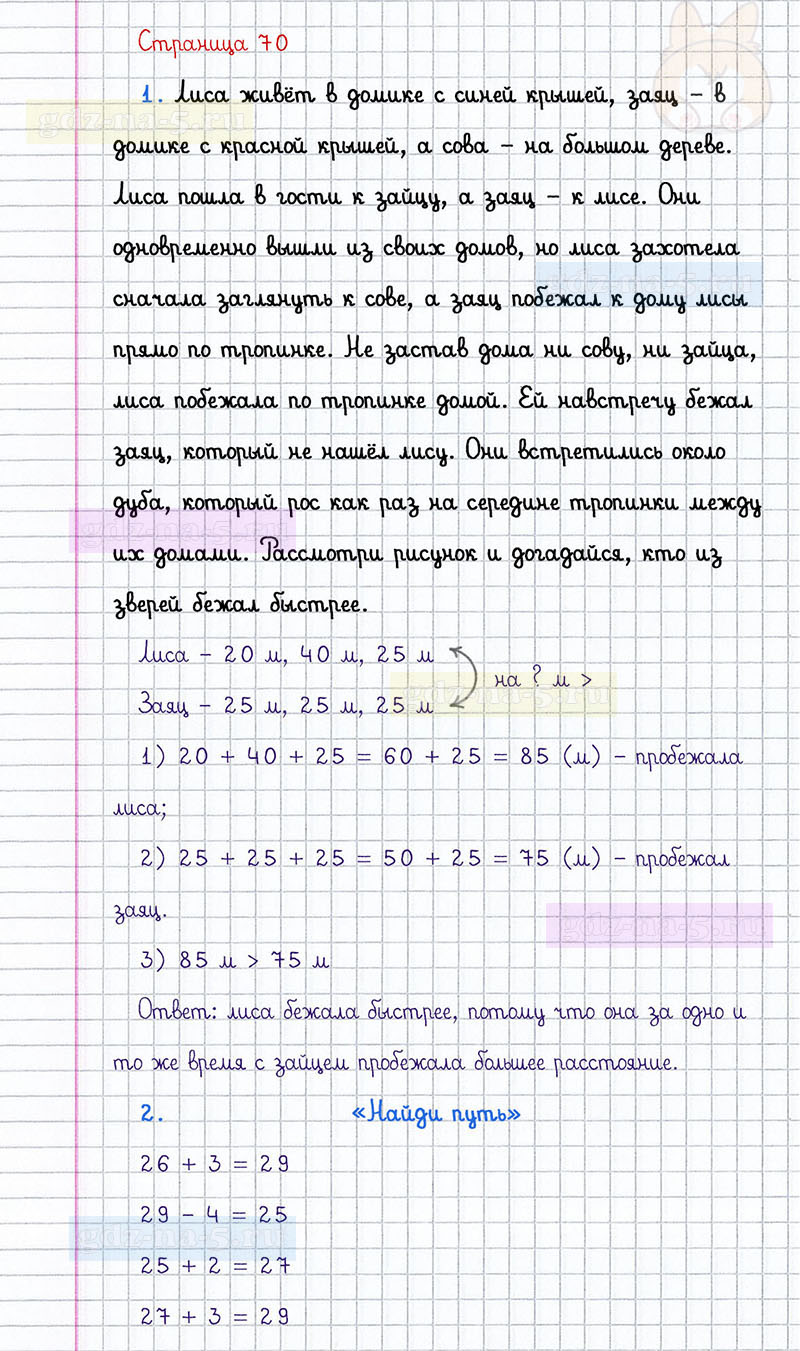 Страница 70
1. Лиса живёт в домике с синей крышей, заяц – в
gdz-na-5.ru
домике с красной крышей, а сова – на большом дереве.
Лиса пошла в гости к зайцу, а заяц – к лисе. Они
одновременно вышли из своих домов, но лиса захотела
gdz-na-5.ru
сначала заглянуть к сове, а заяц побежал к дому лисы
прямо по тропинке. Не застав дома ни сову, ни зайца,
лиса побежала по тропинке домой. Ей навстречу бежал
заяц, который не нашёл лису. Они встретились около
дуба, который рос как раз на середине тропинки между
gdz-na-5.ru
их домами. Рассмотри рисунок и догадайся, кто из
зверей бежал быстрее.
Лиса – 20 м, 40 м, 25 м
на ? м >
gdz-na-5.ru
Заяц – 25 м, 25 м, 25 м
1) 20 + 40 + 25 = 60 + 25 = 85 (м) – пробежала
лиса;
2) 25 + 25 + 25 = 50 + 25 = 75 (м) – пробежал
заяц.
gdz-na-5.ru
3) 85 м > 75 м
Ответ: лиса бежала быстрее, потому что она за одно и
то же время с зайцем пробежала большее расстояние.
2. «Найди путь»
26 + 3 = 29
29 – 4 = 25
gdz-na-5.ru
25 + 2 = 27
27 + 3 = 29